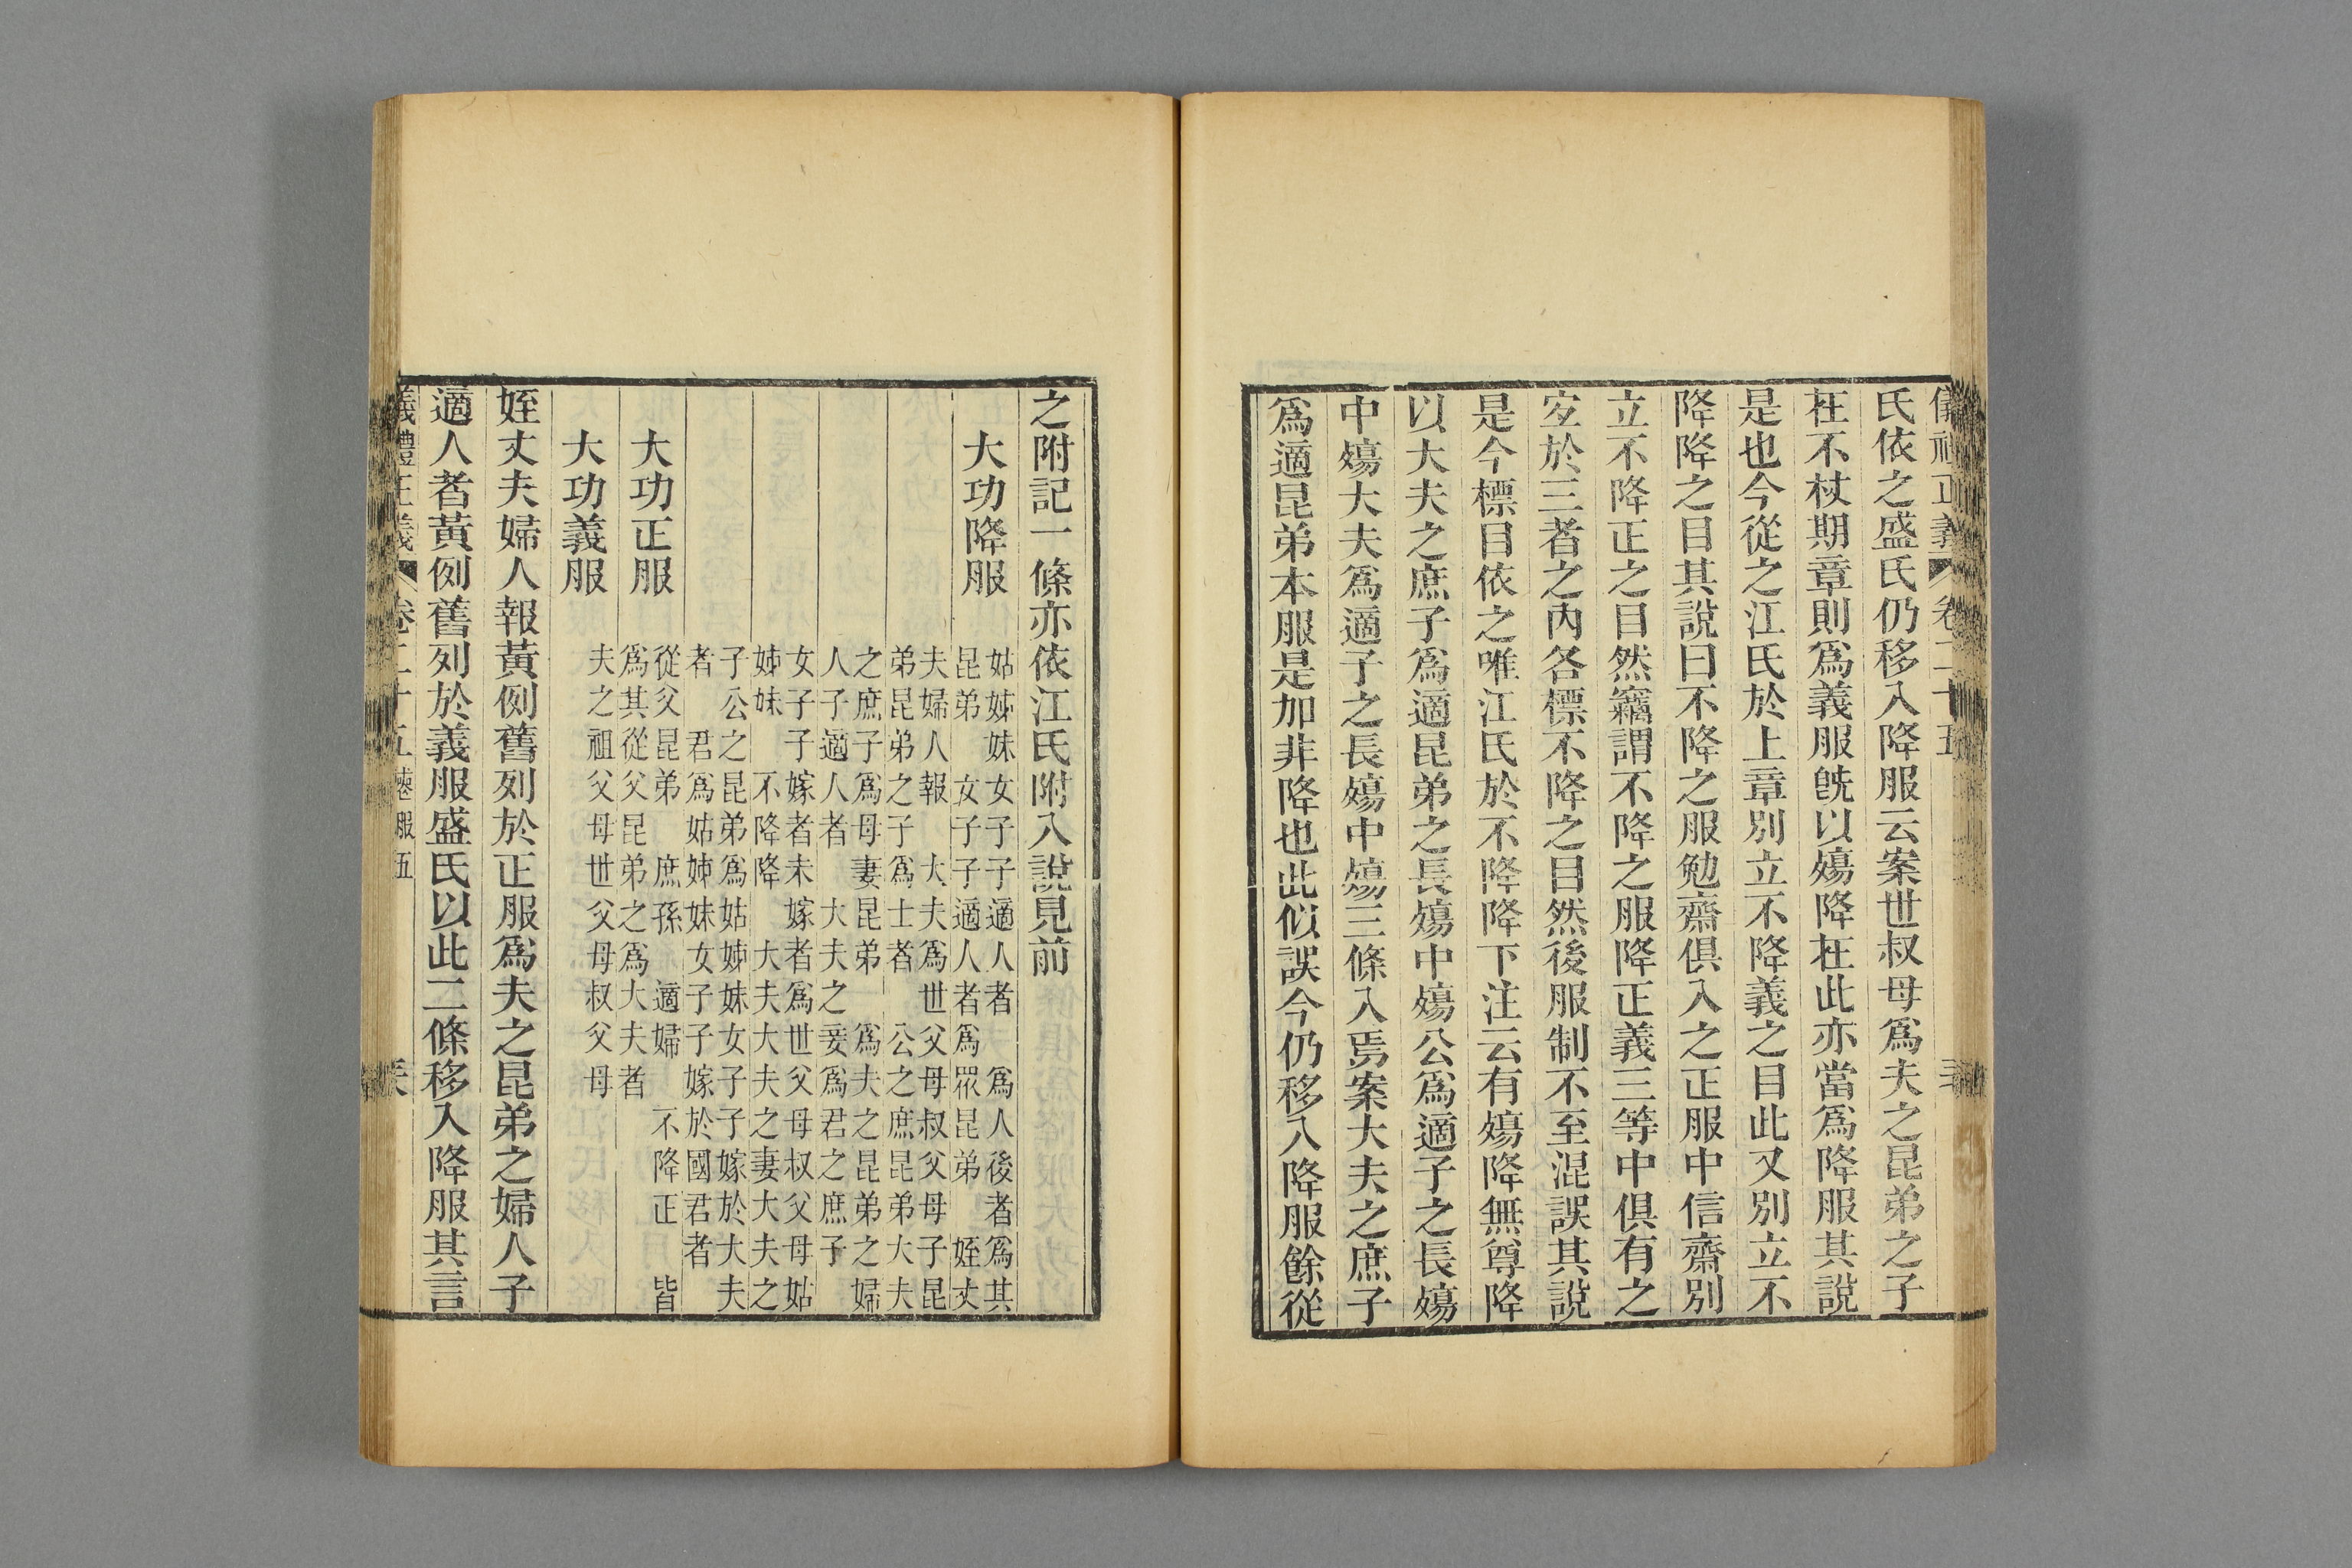 儀禮正義 卷二十五
氏依之盛氏仍移入降服云案世叔母爲夫之昆弟之子
在不杖期章則爲義服旣以殤降在此亦當爲降服其說
是也今從之江氏於上章別立不降義之目此又別立不
降降之目其說曰不降之服勉齋俱入之正服中信齋別
立不降正之目然竊謂不降之服降正義三等中俱有之
宜於三者之內各標不降之目然後服制不至混誤其說
是今標目依之唯江氏於不降降下注云有殤降無尊降
以大夫之庶子爲適昆弟之長殤中殤公爲適子之長殤
中殤大夫爲適子之長殤中殤三條入焉案大夫之庶子
爲適昆弟本服是加非降也此似誤今仍移入降服餘從
之附記一條亦依江氏附入說見前
大功降服
姑姊妹女子子適人者 爲人後者爲其
昆弟 女子子適人者爲眾昆弟 姪丈
夫婦人報 大夫爲世父母叔父母子昆
弟昆弟之子爲士者 公之庶昆弟大夫
之庶子爲母妻昆弟 爲夫之昆弟之婦
人子適人者 大夫之妾爲君之庶子
女子子嫁者未嫁者爲世父母叔父母姑
姊妹 不降降 大夫大夫之妻大夫之
子公之昆弟爲姑姊妹女子子嫁於大夫
者 君爲姑姊妹女子子嫁於國君者
大功正服
從父昆弟 庶孫 適婦 不降正 皆
爲其從父昆弟之爲大夫者
大功義服
夫之祖父母世父母叔父母
姪丈夫婦人報黃例舊列於正服爲夫之昆弟之婦人子
適人者黃例舊列於義服盛氏以此二條移入降服其言
儀禮正義 卷二十五 喪服五